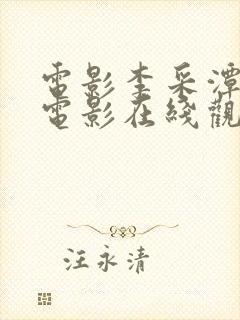 電影李采潭
電影在綫觀
汪永清